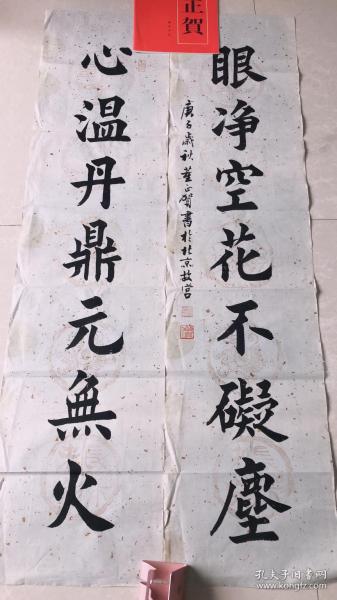 正賀
眼净空花不礙塵
心温丹鼎元無火
庚子歲秋董正賀書於北京故宫
孔夫子旧书网